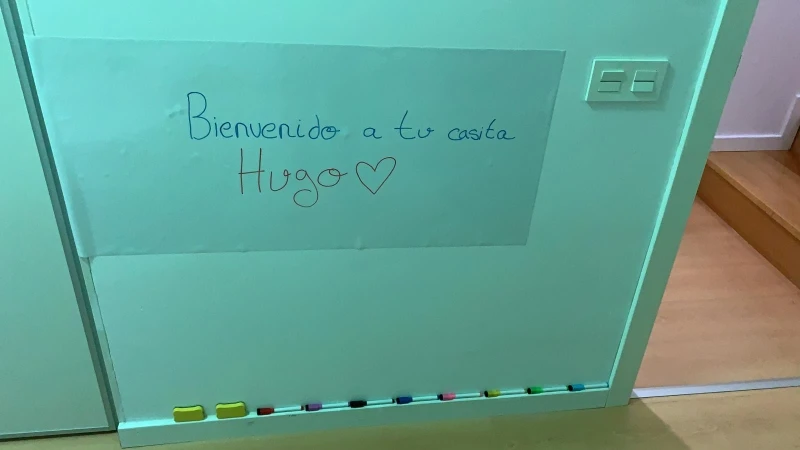 Bienvenido a tu casita
Hugo♡